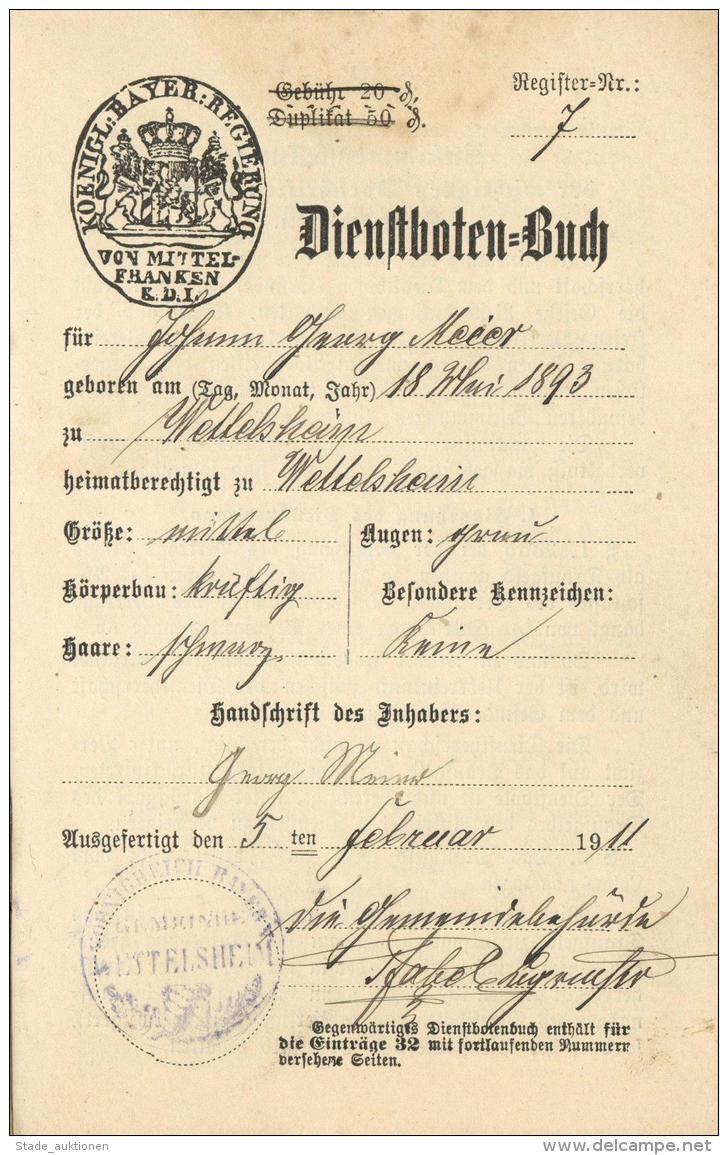 KOENIGL: BAYER: REGIERUNG
VON MITTEL-
FRANKEN
K.D.I.
Gebühr 20 ₰.
Duplikat 50 ₰.
Register=Nr.:
7
Dienstboten=Buch
für Johann Georg Meier
geboren am (Tag, Monat, Jahr) 18 Mai 1893
zu Wettelsheim
heimatberechtigt zu Wettelsheim
Größe: mittel
Augen: grau
Körperbau: kräftig
Besondere Kennzeichen:
Haare: schwarz
Keine
Handschrift des Inhabers:
Georg Meier
Ausgefertigt den 5 ten Februar 1911
KOENIGREICH BAYERN
GEMEINDE
WETTELSHEIM
die Gemeindebehörde
Gegenwärtiges Dienstbotenbuch enthält für
die Einträge 32 mit fortlaufenden Nummern
versehene Seiten.
Stade_auktionen
www.delcampe.net